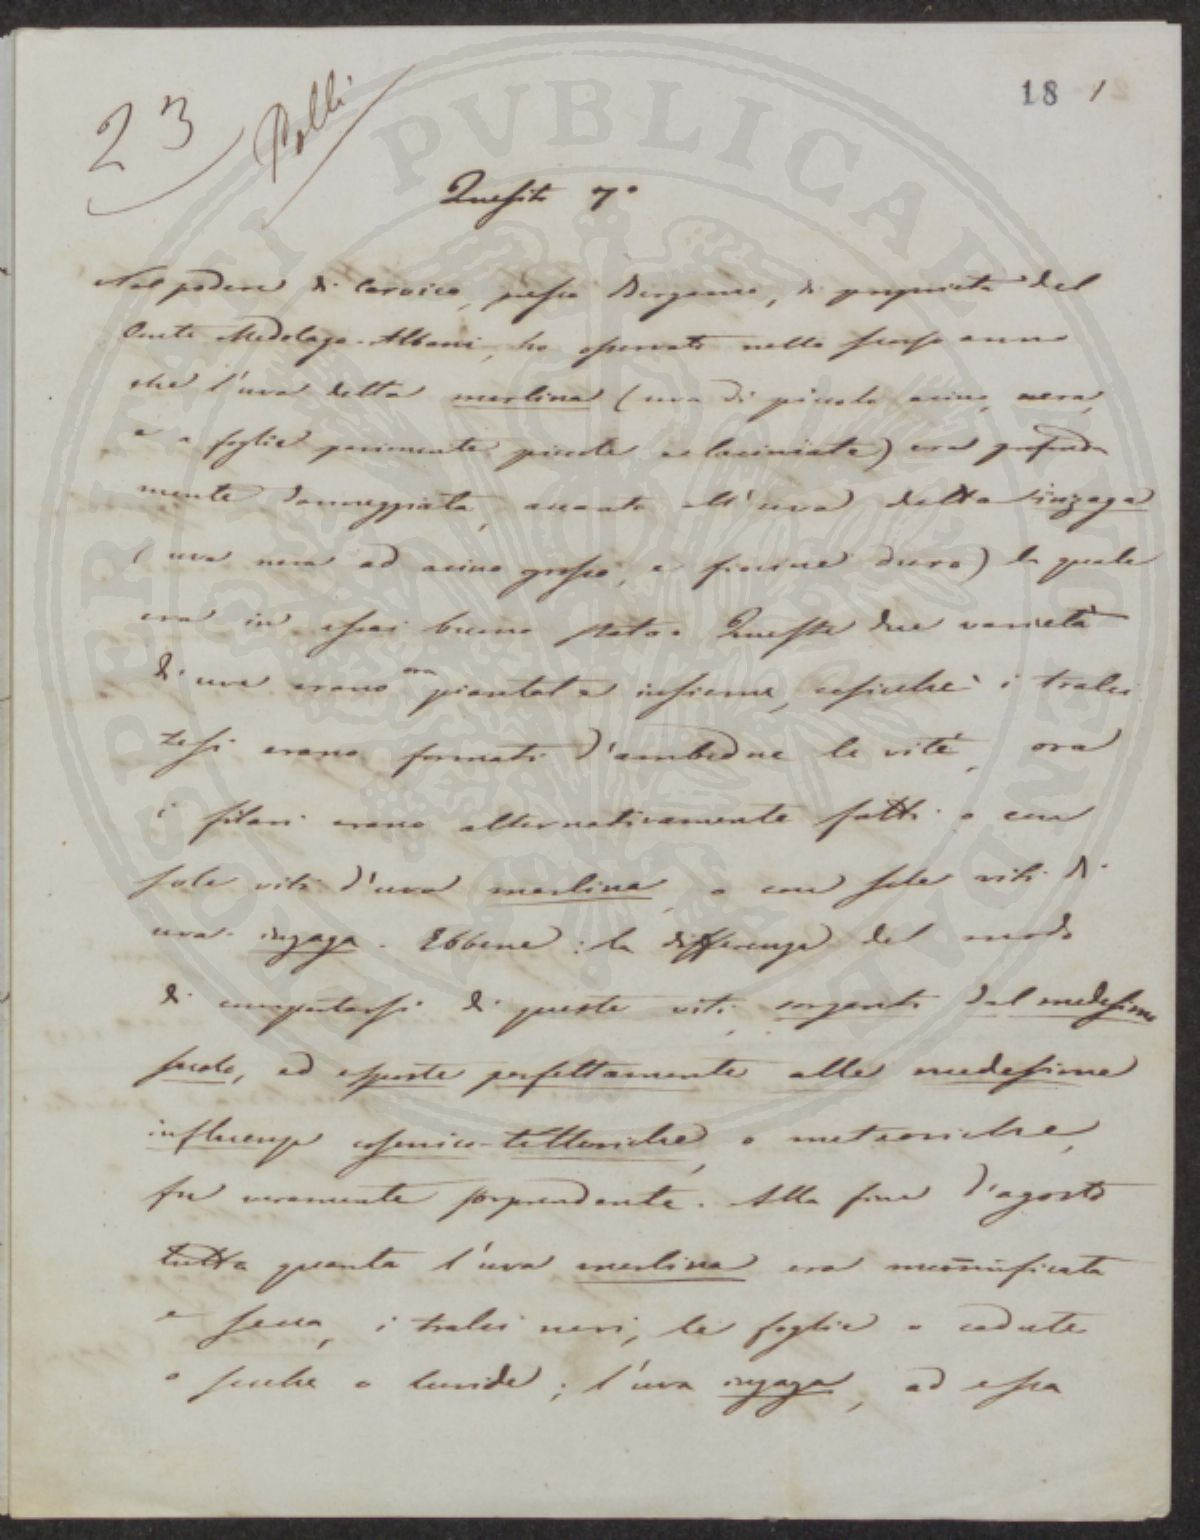 23 Polli
18 1
Quesito 7°
Nel podere di Carvico, presso Bergamo, di proprietà del
Conte Medolago-Albani, ho osservato nello scorso anno
che l'uva detta merlina (uva di piccolo acino, nera,
e a foglie parimente piccole e laciniate) era profonda
mente danneggiata, accanto all'uva detta inzaga
(uva nera ad acino grosso, e fiocine duro) la quale
era in assai buono stato. Queste due varietà
di uva erano ora piantate insieme, cosicché i tralci
tesi erano formati d'ambedue le viti, ora
i filari erano alternativamente fatti o con
sole viti d'uva merlina, o con sole viti di
uva inzaga. Ebbene: la differenza del modo
di comportarsi di queste viti, sorgenti dal medesimo
suolo, ed esposte perfettamente alle medesime
influenze cosmico-telluriche, o meteoriche,
fu veramente sorprendente. Alla fine d'agosto
tutta quanta l'uva merlina era mummificata
e secca, i tralci neri, le foglie o cadute
o secche o livide; l'uva inzaga, ad essa